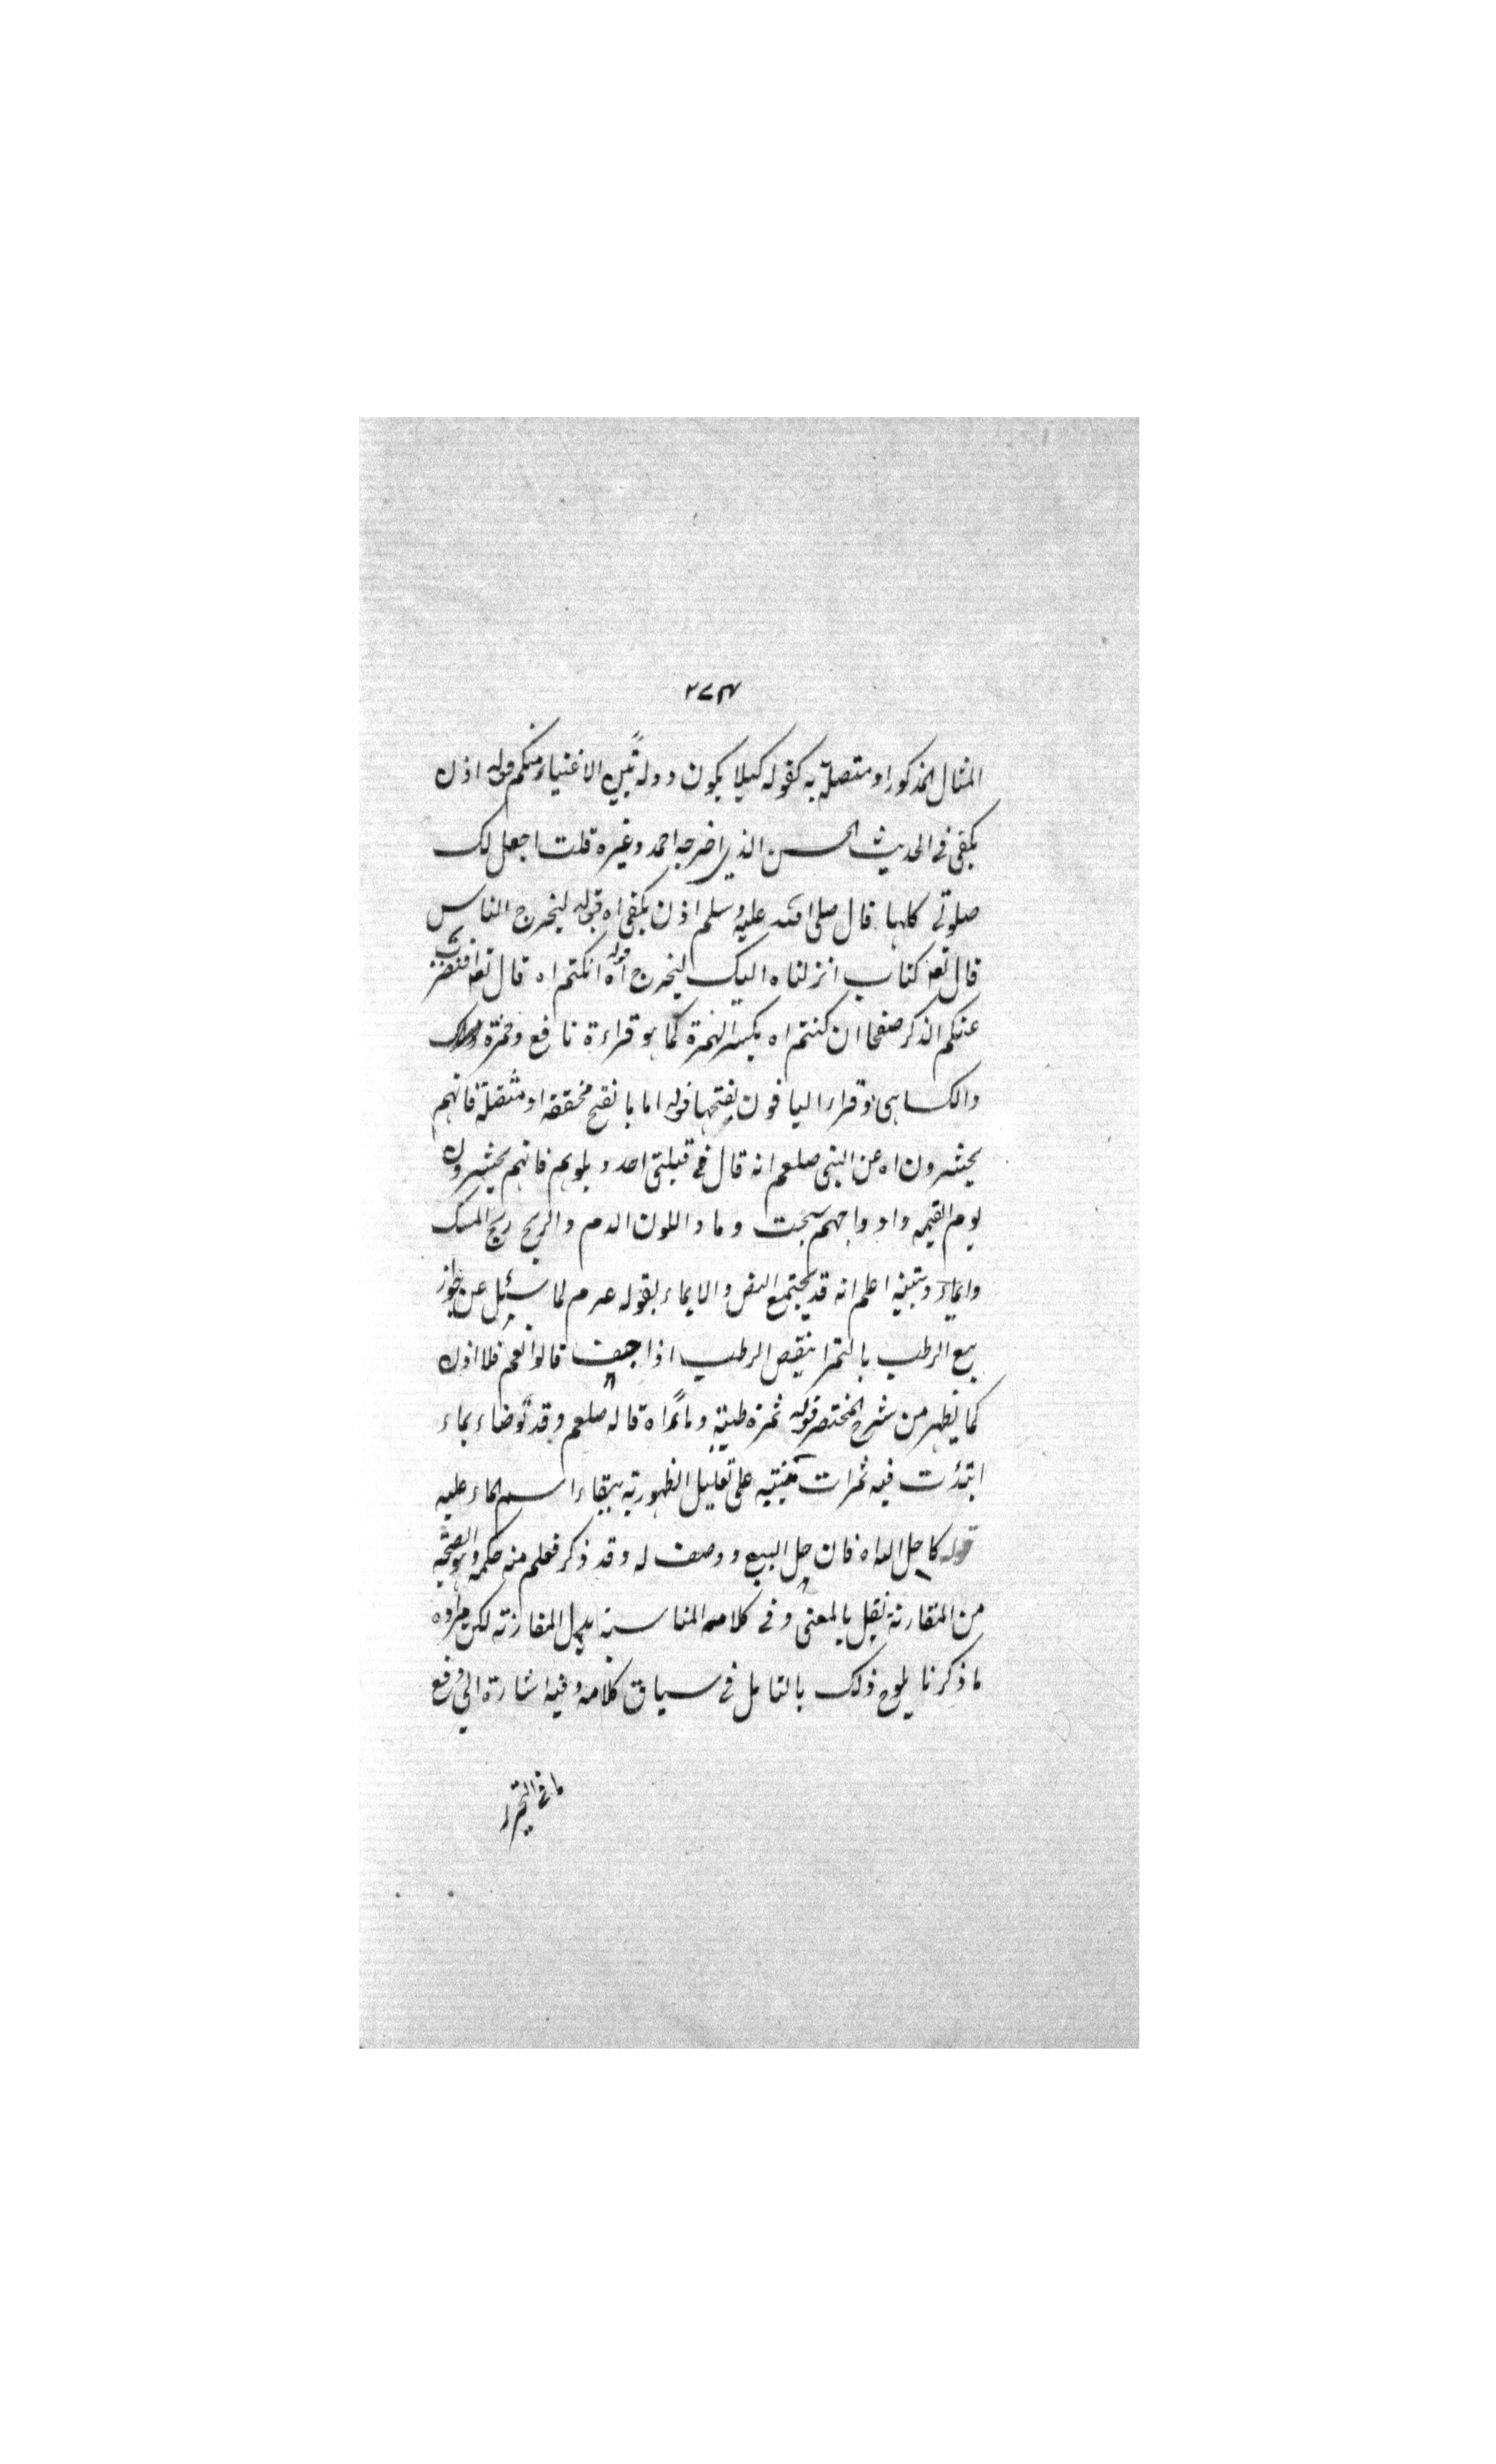 ٢٧٤
المثال المذكور او متصلة به كقوله كيلا يكون دولة بين الاغنياء منكم قوله اذن
يكفى فى الحديث الحسن الذي اخرجه احمد وغيره قلت اجعل لك
صلوتى كلها قال صلى الله عليه وسلم اذن يكفى اه قوله ليخرج الناس
قال تعه كتاب انزلناه اليك ليخرج اه قوله ان كنتم اه قال تعه افنضرب
عنكم الذكر صفحا ان كنتم اه بكسر الهمزة كما هو قراءة نافع وحمزة
والكسائى وقراء الباقون بفتحها قوله اما بالفتح مخففة او مثقلة فانهم
يحشرون اه عن النبى صلعم انه قال فى قتلى احد زملوهم فانهم يحشرون
يوم القيمه واوداجهم تشخب دما واللون الدم والريح ريح المسك
وايماء وتنبيه اعلم انه قد يجتمع النص والايماء لقوله عرم لما سئل عن جواز
بيع الرطب بالتمر اينقص الرطب اذا جف قالوا نعم فلا اذن
كما يظهر من شرح المختصر قوله ثمرة طيبة وماء اه قاله صلعم وقد توضاء بماء
نبذت فيه تمرات تنبيه على تعليل الطهورية ببقاء اسم الماء عليه
قوله كاحل الله اه فان حل البيع وصف له وقد ذكر فعلم منه حكمه وهو الصحة
من المقارنة نقل بالمعنى وفى كلامه المناسبة بدل المقارنة لكن مراده
ما ذكرنا يلوح ذلك بالتامل فى سياق كلامه وفيه اشارة الى دفع
ما فى التحرير